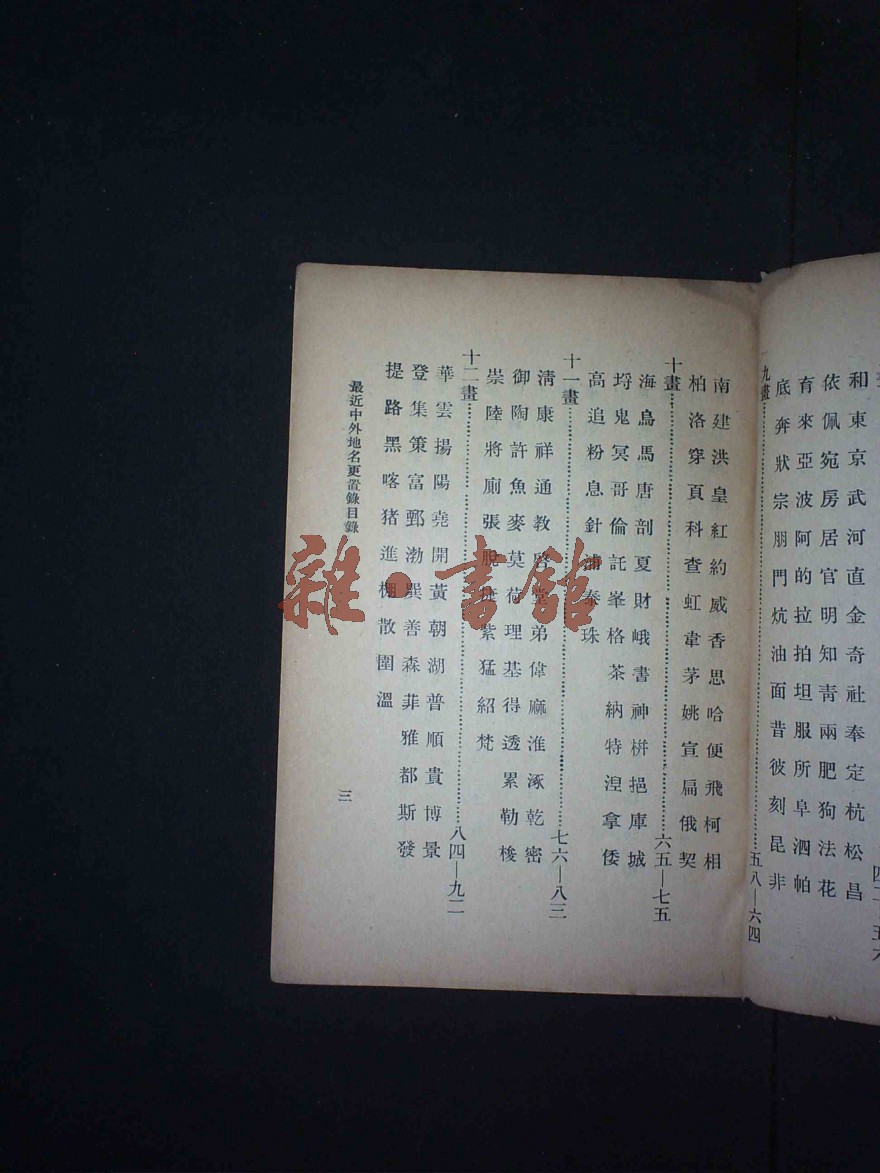 和東京武河直金奇社奉定杭松昌
依佩宛房居官明知靑兩肥狗法花
育來亞波阿的拉拍坦服所阜泗帕
底奔狀宗朋門炕油面昔彼刻昆非
九畫……五八—六四
南建洪皇紅約威香思哈便飛柯相
柏洛穿頁科查虹韋茅姚宣扁俄契
十畫……六五—七五
海烏馬唐剖夏財峨書神栟挹庫城
埒鬼冥哥倫託峯格茶納特湼拿倭
高追粉息針浦泰珠
十一畫……七六—八三
淸康祥通教啓堂弟偉麻淮涿乾密
御陶許魚麥莫荷理基得透累勒梭
崇陸將廁張脫捷紫猛紹梵
十二畫……八四—九二
華雲揚陽堯開黃朝湖普順貴博景
登集策富鄄渤巽善森菲雅都斯發
提路黑喀猪進棚散圍溫
最近中外地名更置錄目錄
三
雜·書館